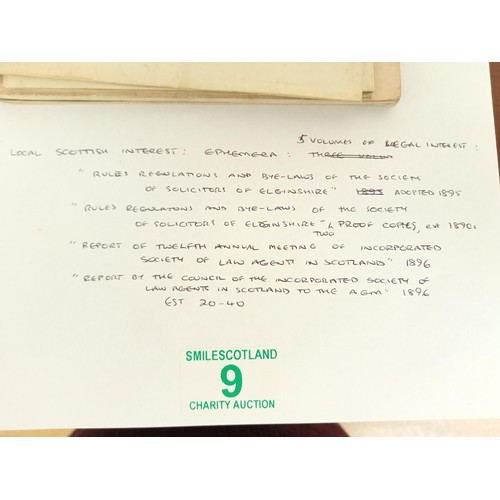 5 VOLUMES OF LEGAL INTEREST :
LOCAL SCOTTISH INTEREST : EPHEMERA : THREE
" RULES REGULATIONS AND BYE-LAWS OF THE SOCIETY
OF SOLICITORS OF ELGINSHIRE " 1895 ADOPTED 1895
" RULES REGULATIONS AND BYE-LAWS OF THE SOCIETY
OF SOLICITORS OF ELGINSHIRE " PROOF COPIES, 1890s
TWO
" REPORT OF TWELFTH ANNUAL MEETING OF INCORPORATED
SOCIETY OF LAW AGENTS IN SCOTLAND " 1896
" REPORT BY THE COUNCIL OF THE INCORPORATED SOCIETY OF
LAW AGENTS IN SCOTLAND TO THE AGM " 1896
EST 20-40
SMILESCOTLAND
9
CHARITY AUCTION